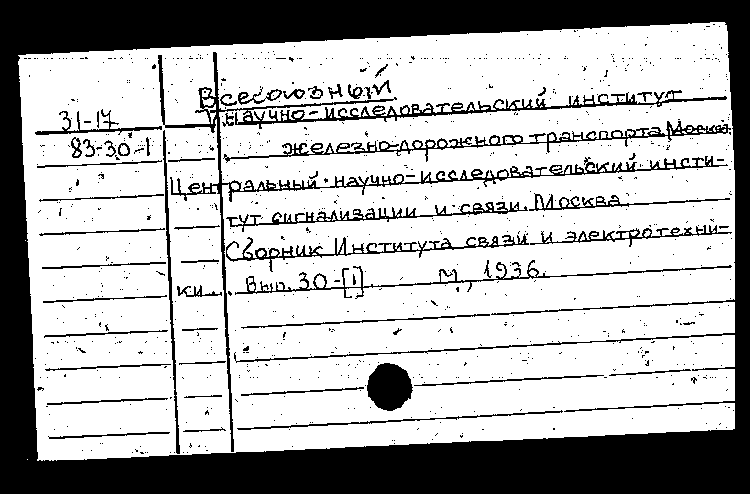 Всесоюзный
31-17 научно-исследовательский институт
83-30-1 железно-дорожного транспорта Москва.
Центральный научно-исследовательский инсти-
тут сигнализации и связи. Москва.
Сборник Института связи и электротехни-
ки... Вып. 30-[1]. М., 1936.